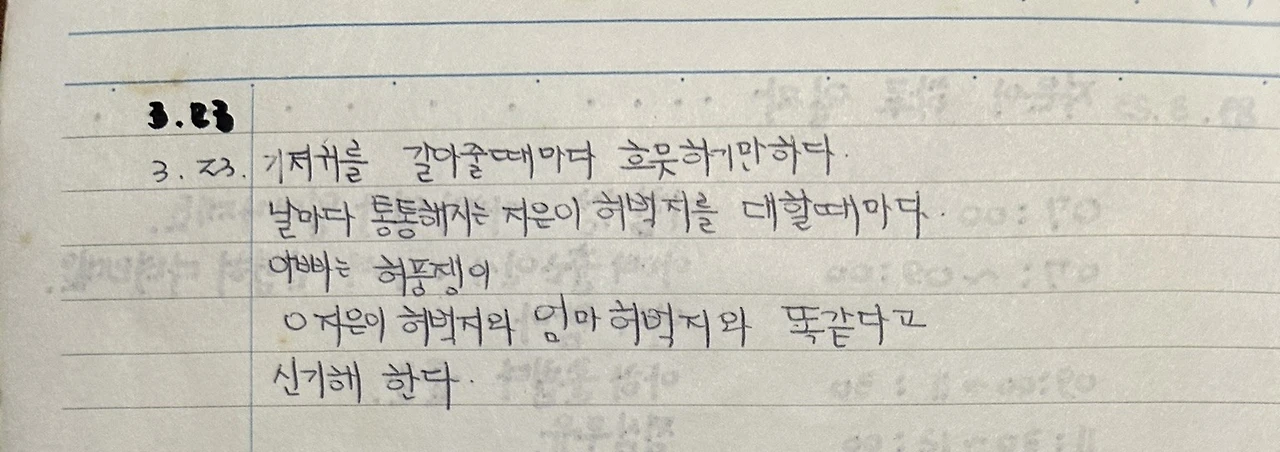 3.23
3.23. 기저귀를 갈아줄때마다 흐뭇하기만하다.
날마다 통통해지는 지은이 허벅지를 대할때마다.
아빠는 허풍쟁이
○ 지은이 허벅지와 엄마 허벅지와 똑같다고
신기해 한다.